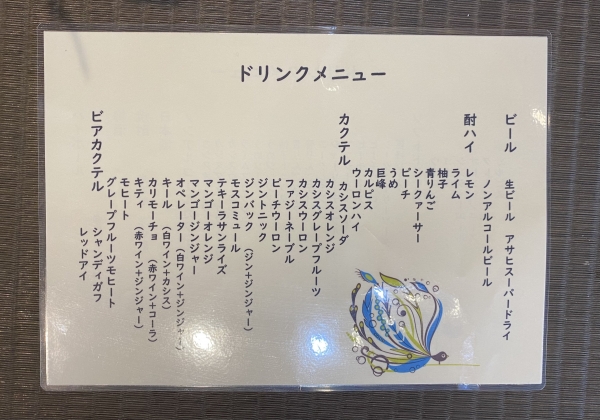 ドリンクメニュー
ビール　生ビール　アサヒスーパードライ
ノンアルコールビール
酎ハイ　レモン
ライム
柚子
青りんご
シークァーサー
ピーチ
うめ
巨峰
カルピス
ウーロンハイ
カクテル　カシスソーダ
カシスオレンジ
カシスグレープフルーツ
カシスウーロン
ファジーネーブル
ピーチウーロン
ジントニック
ジンバック　（ジン+ジンジャー）
モスコミュール
テキーラサンライズ
マンゴーオレンジ
マンゴージンジャー
オペレーター（白ワイン+ジンジャー）
キール　（白ワイン+カシス）
カリモーチョ　（赤ワイン+コーラ）
キティ　（赤ワイン+ジンジャー）
モヒート
グレープフルーツモヒート
ビアカクテル　シャンディガフ
レッドアイ